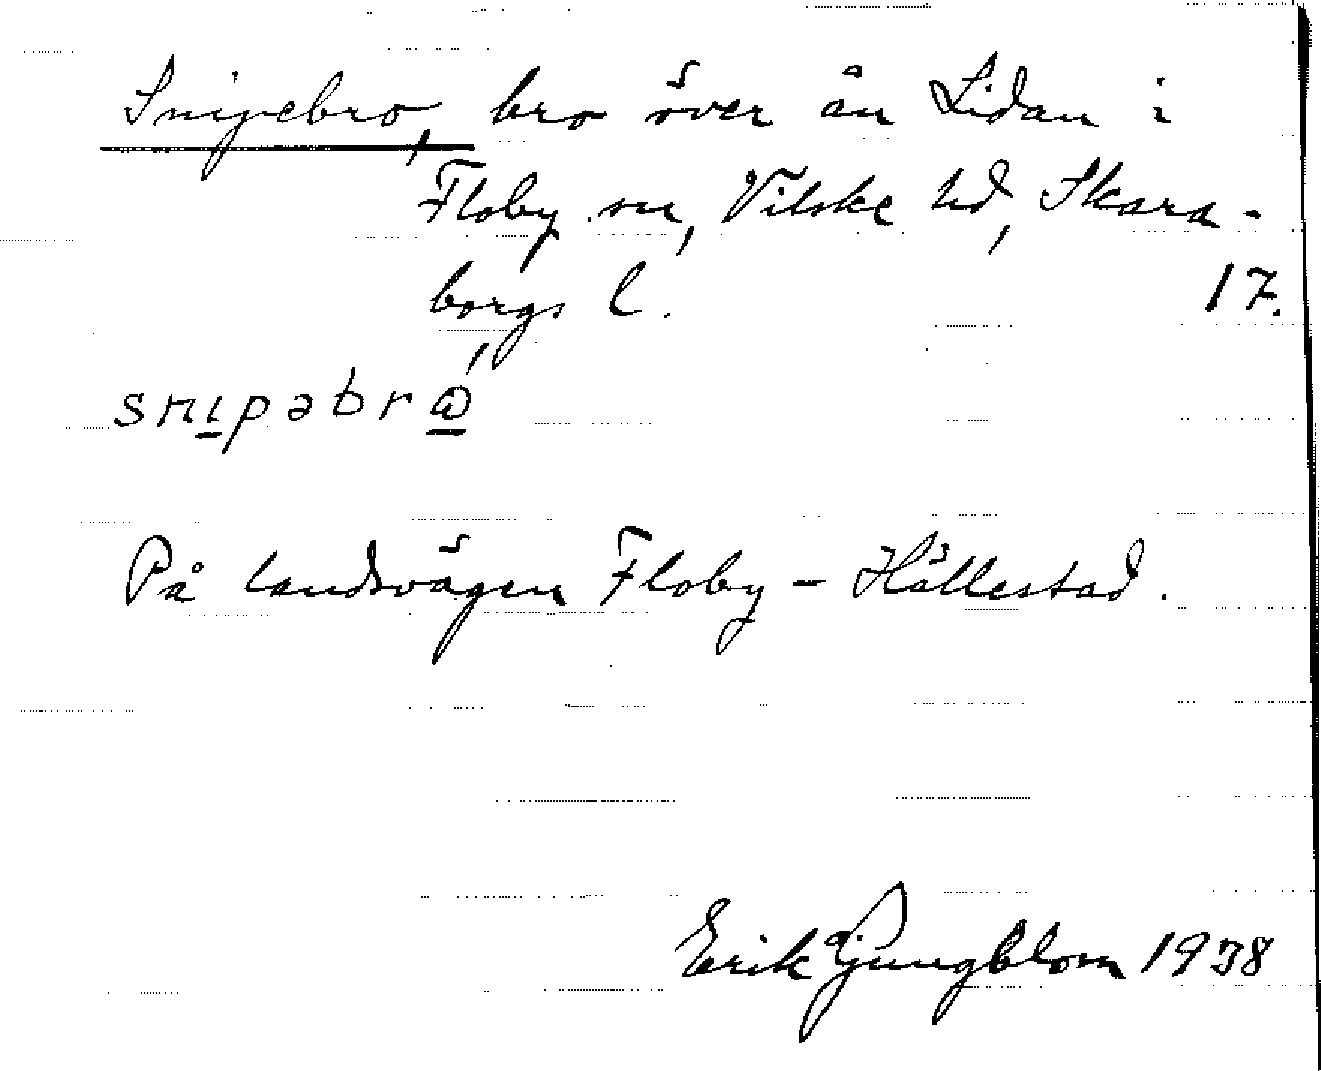 Snipebro, bro över ån Lidan i
Floby sn, Vilske hd, Skara-
borgs l. 17.
snipəbrω
På landsvägen Floby - Hällestad.
Erik Ljungblom 1938